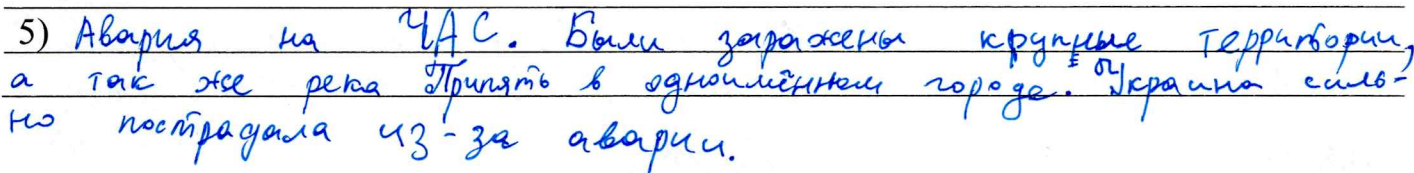 5) Авария на ЧАС. Были заражены крупные территории,
а так же река Припять в одноимённом городе. Украина силь-
но пострадала из-за аварии.